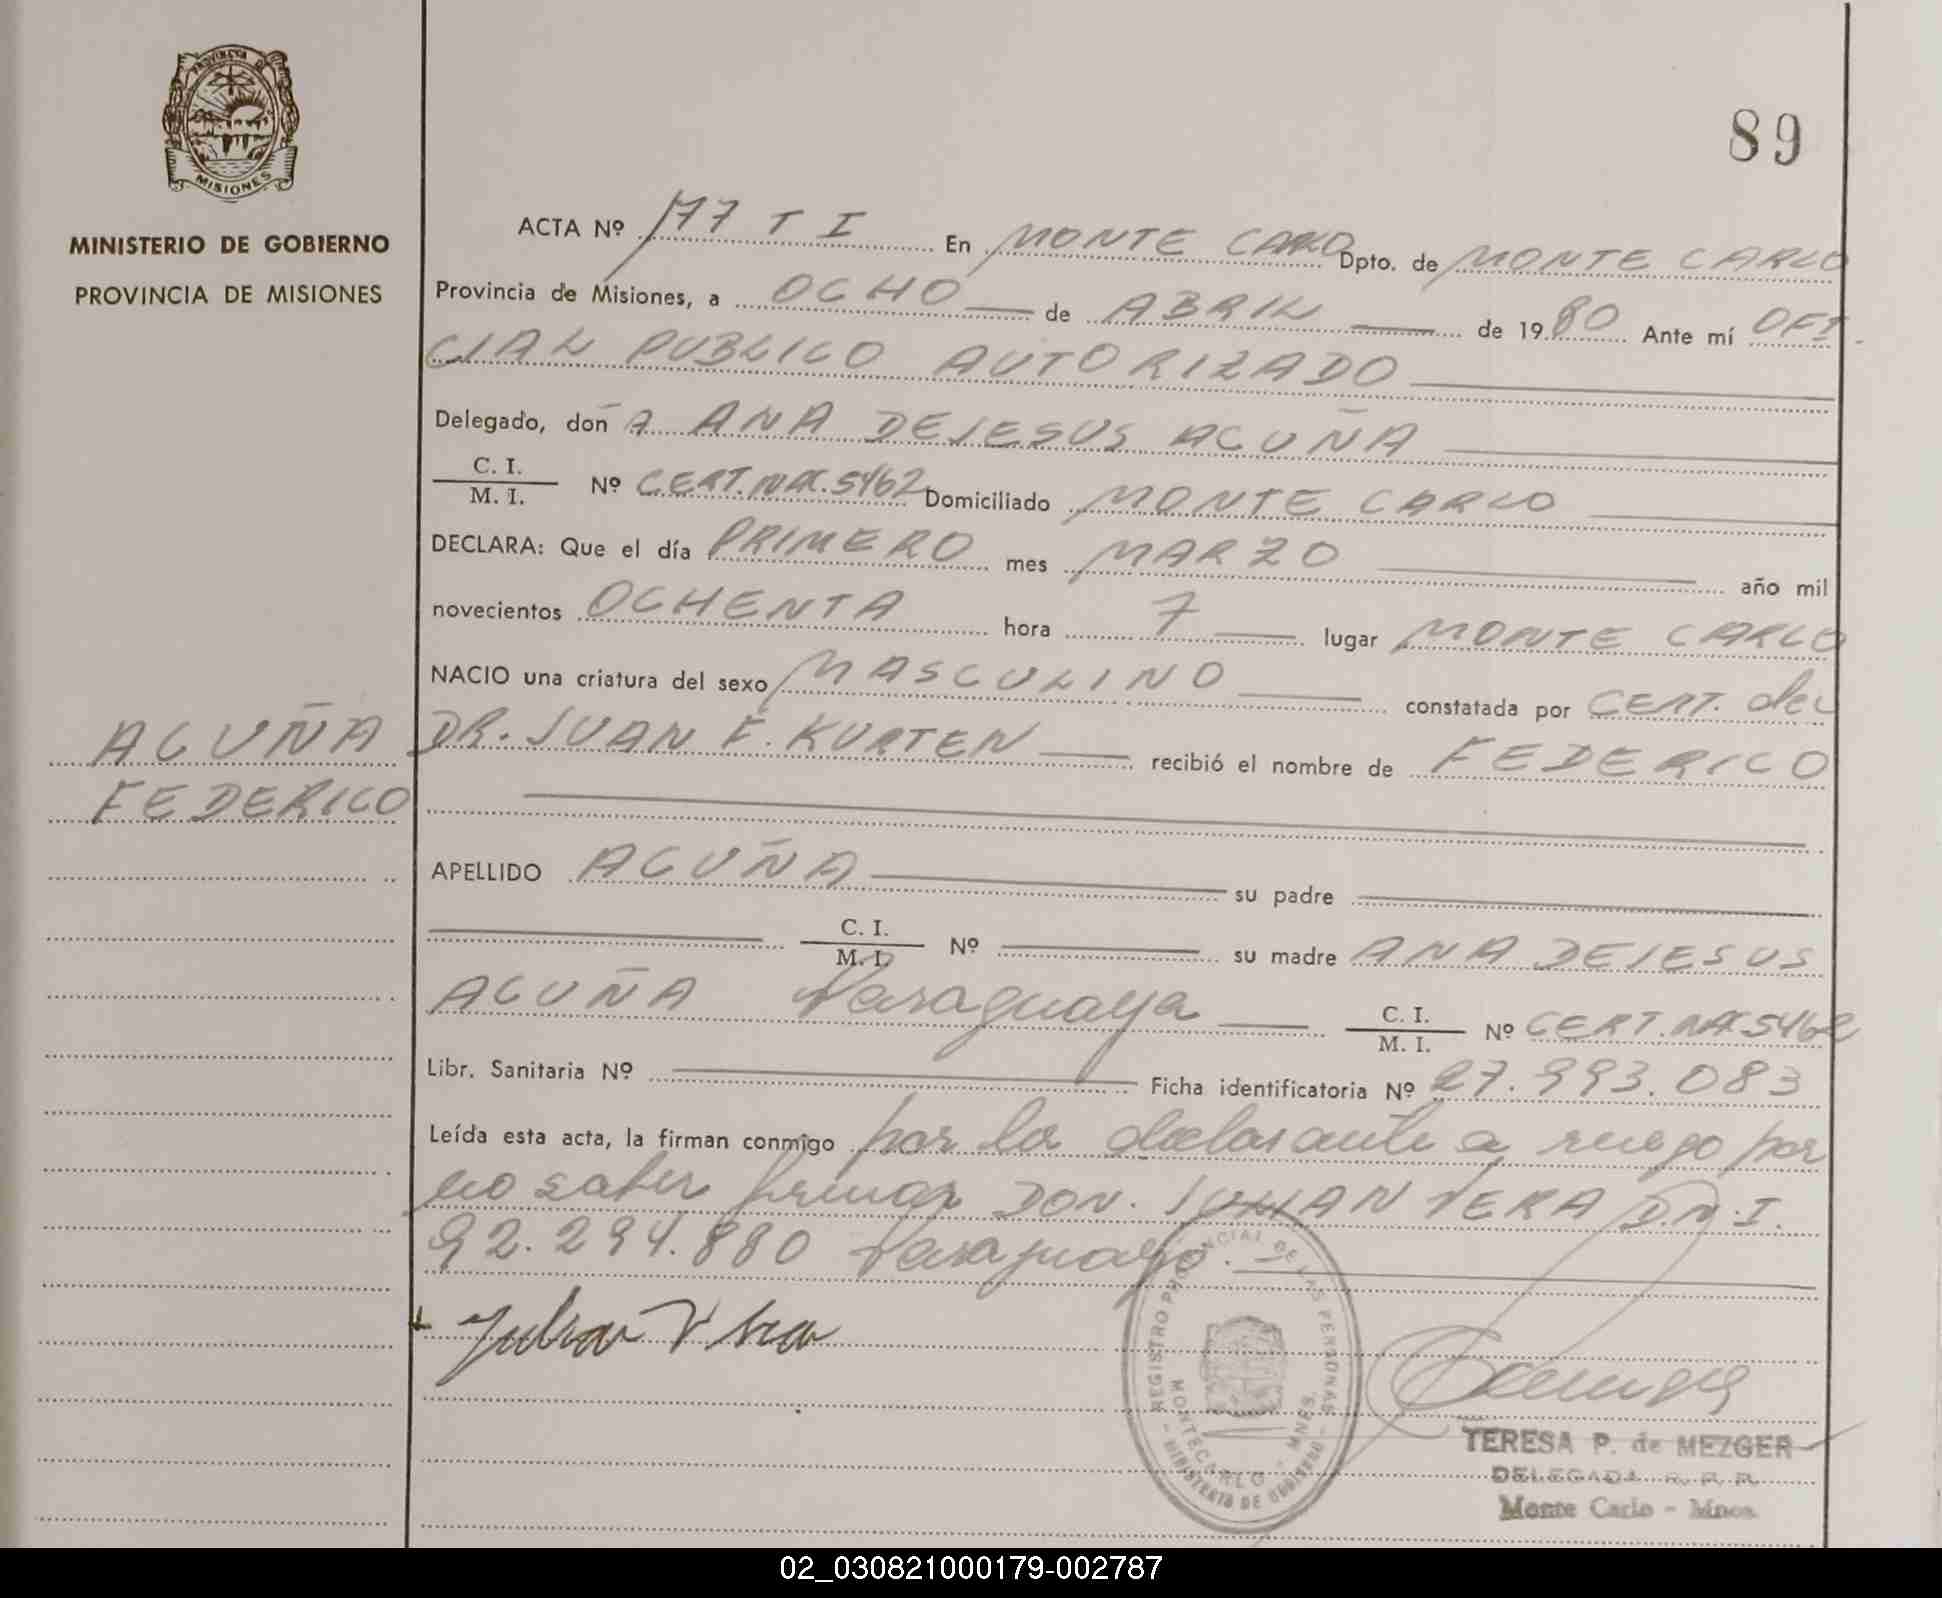 PROVINCIA DE
MISIONES
MINISTERIO DE GOBIERNO
PROVINCIA DE MISIONES
89
ACTA Nº 177 T I En MONTE CARLO Dpto. de MONTE CARLO
Provincia de Misiones, a OCHO de ABRIL de 1980 Ante mí OFI-
CIAL PUBLICO AUTORIZADO
Delegado, doñA ANA DEJESUS ACUÑA
C. I.
M. I. Nº CERT.NAC.5462 Domiciliado MONTE CARLO
DECLARA: Que el día PRIMERO mes MARZO año mil
novecientos OCHENTA hora 7 lugar MONTE CARLO
NACIO una criatura del sexo MASCULINO constatada por CERT. del
DR. JUAN F. KURTEN recibió el nombre de FEDERICO
ACUÑA
FEDERICO
APELLIDO ACUÑA su padre
C. I.
M. I. Nº su madre ANA DEJESUS
ACUÑA Paraguaya C. I.
M. I. Nº CERT.NAC.5462
Libr. Sanitaria Nº Ficha identificatoria Nº 27.993.083
Leída esta acta, la firman conmigo por la declarante a ruego por
no saber firmar DON. JULIAN VERA D.N.I.
92.294.880 Paraguayo.
Julian Vera
REGISTRO PROVINCIAL DE LAS PERSONAS
MONTECARLO - MNES.
- MINISTERIO DE GOBIERNO -
TERESA P. de MEZGER
DELEGADA R. P. P.
Monte Carlo - Mnes.
02_030821000179-002787